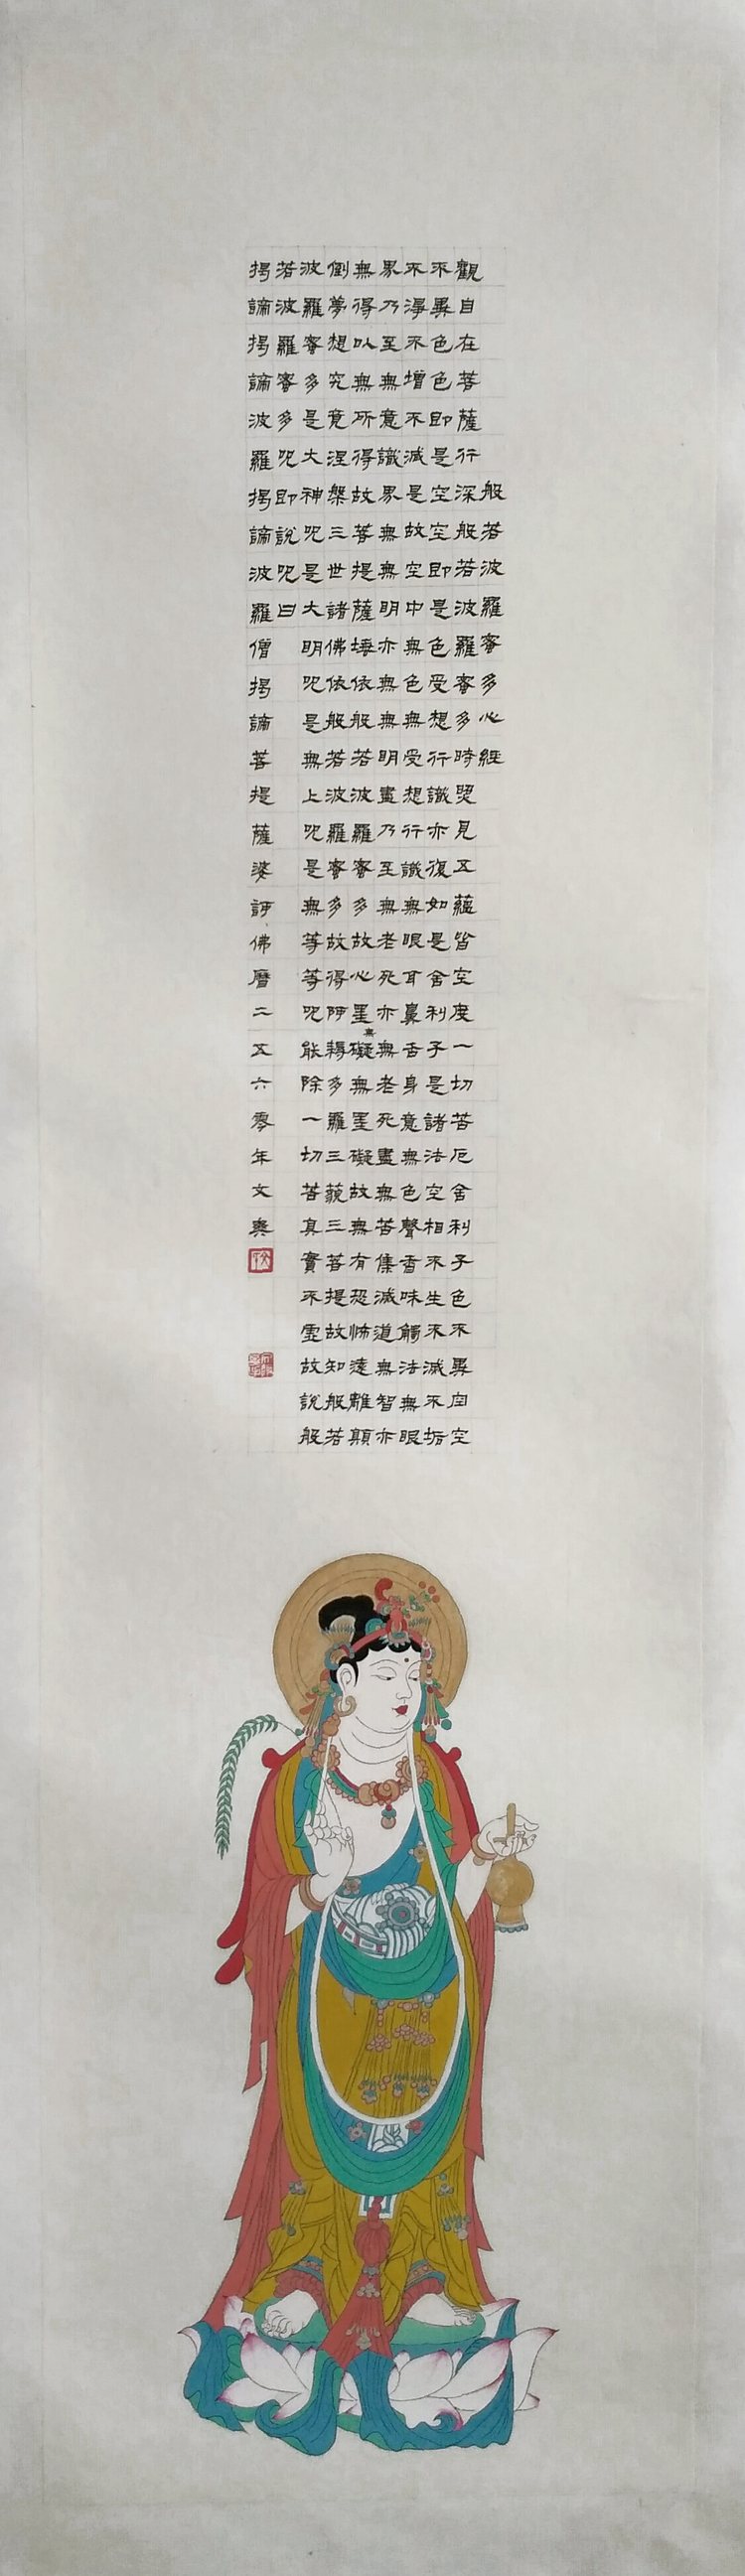 般若波羅蜜多心經
觀自在菩薩行深般若波羅蜜多時照見五蘊皆空度一切苦厄舍利子色不異空空
不異色色即是空空即是色受想行識亦復如是舍利子是諸法空相不生不滅不垢
不淨不增不減是故空中無色無受想行識無眼耳鼻舌身意無色聲香味觸法無眼
界乃至無意識界無無明亦無無明盡乃至無老死亦無老死盡無苦集滅道無智亦
無得以無所得故菩提薩埵依般若波羅蜜多故心罣無礙無罣礙故無有恐怖遠離顛
倒夢想究竟涅槃三世諸佛依般若波羅蜜多故得阿耨多羅三藐三菩提故知般若
波羅蜜多是大神咒是大明咒是無上咒是無等等咒能除一切苦真實不虛故說般
若波羅蜜多咒即說咒曰
揭諦揭諦波羅揭諦波羅僧揭諦菩提薩婆訶佛曆二五六零年文